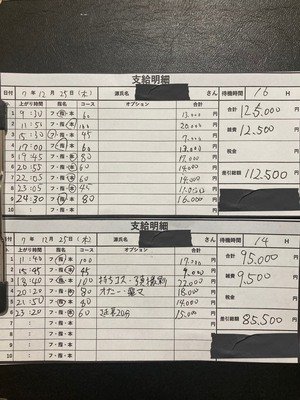 支給明細
日付 7年 12月 25日(木) 源氏名 さん 待機時間 16 H
上がり時間 指名 コース オプション 合計
1 9:30 フ・指・本 60 13,000 円
2 11:50 フ・指・本 100 20,000 円
3 15:30 フ・指・本 45 円
4 17:00 フ・指・本 60 13,000 円
5 19:45 フ・指・本 80 17,000 円
6 20:55 フ・指・本 60 14,000 円
7 22:55 フ・指・本 60 14,000 円
8 23:05 フ・指・本 45 円
9 24:30 フ・指・本 80 16,000 円
合計 125,000 円
雑費 12,500 円
税金 円
差引総額 112,500 円
支給明細
日付 7年 12月 25日(木) 源氏名 さん 待機時間 14 H
上がり時間 指名 コース オプション 合計
1 11:40 フ・指・本 100 円
2 15:45 フ・指・本 45 9,000 円
3 18:40 フ・指・本 100 円
4 20:20 フ・指・本 80 18,000 円
5 21:50 フ・指・本 60 14,000 円
6 23:20 フ・指・本 60 延長20分 15,000 円
7 : フ・指・本 円
8 : フ・指・本 円
9 : フ・指・本 円
10 : フ・指・本 円
合計 95,000 円
雑費 9,500 円
税金 円
差引総額 85,500 円